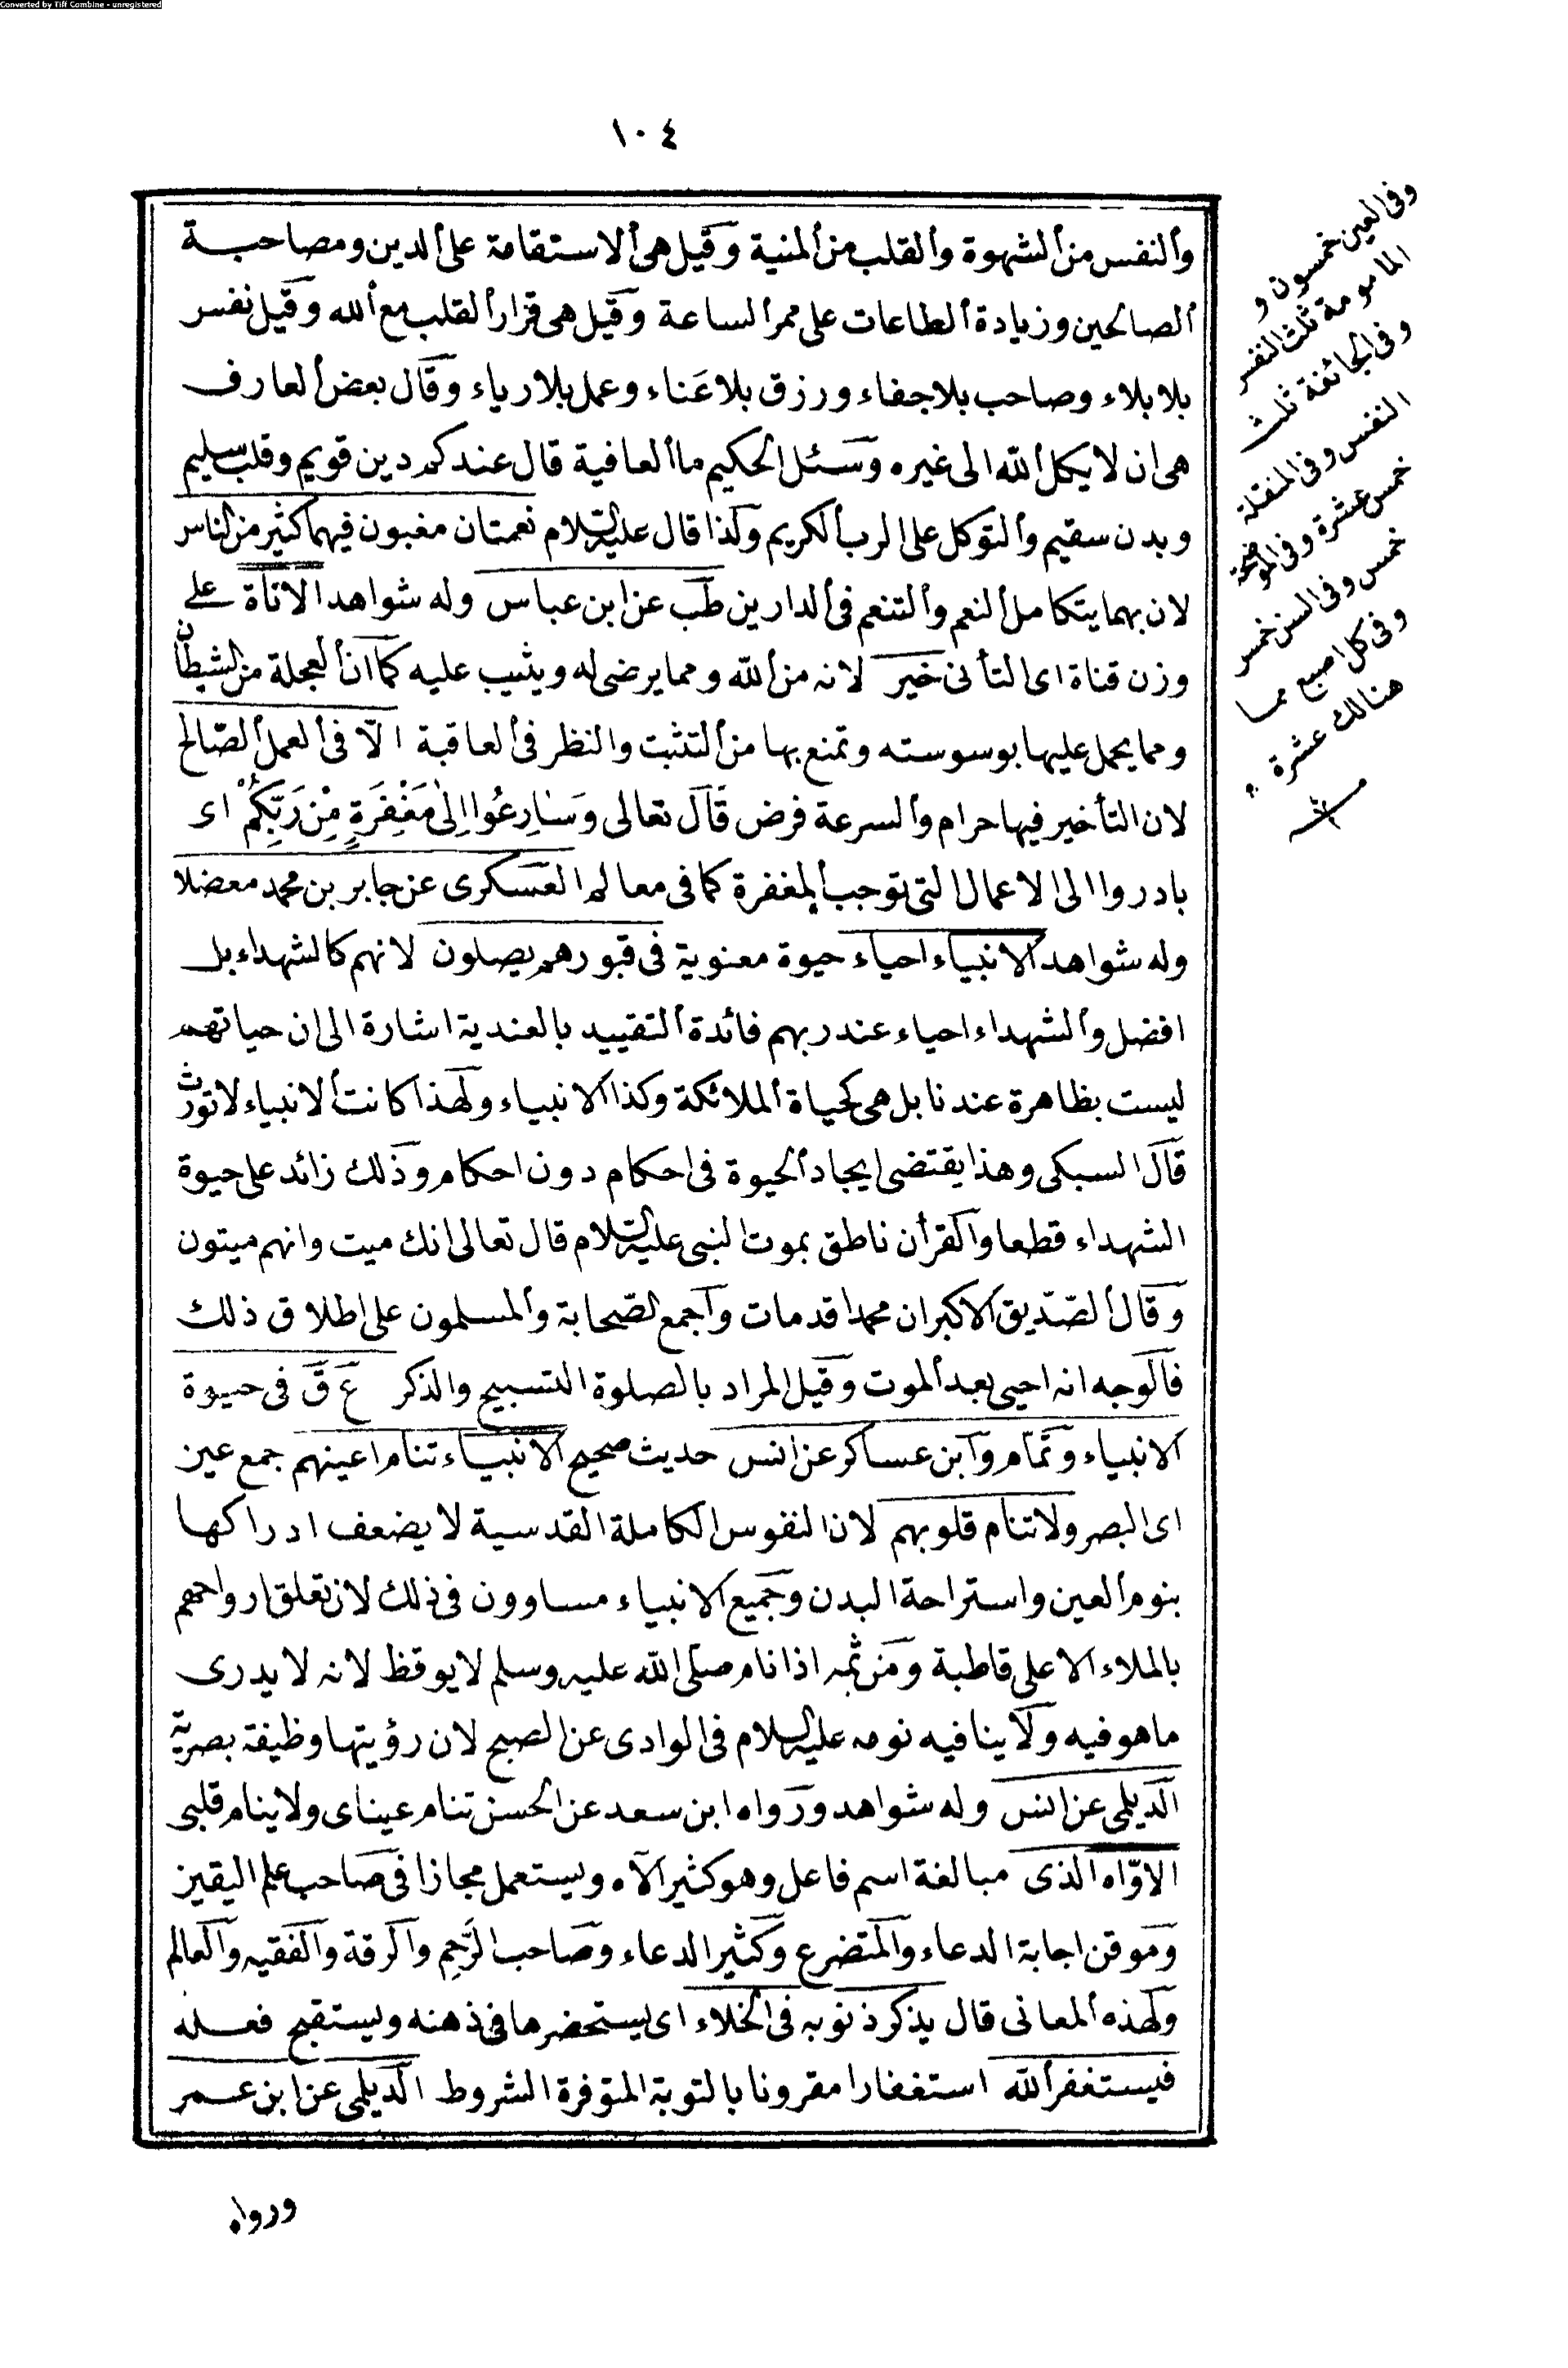 Converted by Tiff Combine - unregistered
١٠٤
والنفس من الشهوة والقلب من المنية وقيل هى الاستقامة على الدين ومصاحبة
الصالحين وزيادة الطاعات على ممر الساعة وقيل هى قرار القلب مع الله وقيل نفس
بلا بلاء وصاحب بلا جفاء ورزق بلا عَناء وعمل بلا رياء وقال بعض العارف
هى ان لا يكل الله الى غيره وسئل الحكيم ما العافية قال عندكم دين قويم وقلب سليم
وبدن سقيم والتوكل على الرب الكريم وكذا قال عليه السلام نعمتان مغبون فيهما كثير من الناس
لان بهما يتكامل النعم والتنعم فى الدارين طب عن ابن عباس وله شواهد الاناة على
وزن قناة اى التأنى خير لانه من الله ومما يرضى له ويثيب عليه كما ان العجلة من الشيطان
ومما يحمل عليها بوسوسته وتمنع بها من التثبت والنظر فى العاقبة الّا فى العمل الصّالح
لان التأخير فيها حرام والسرعة فرض قال تعالى وَسَارِعُوا اِلىٰ مَغْفِرَةٍ مِنْ رَبِّكُمْ اى
بادروا الى الاعمال التى توجب المغفرة كما فى معالم العسكرى عن جابر بن محمد معضلا
وله شواهد الانبياء احياء حيوة معنوية فى قبورهم يصلون لانهم كالشهداء بل
افضل والشهداء احياء عند ربهم فائدة التقييد بالعندية اشارة الى ان حياتهم
ليست بظاهرة عندنا بل هى كحياة الملائكة وكذا الانبياء ولهذا كانت الانبياء لا تورث
قال السبكى وهذا يقتضى ايجاد الحيوة فى احكام دون احكام وذلك زائد على حيوة
الشهداء قطعا والقرأن ناطق بموت النبى عليه السلام قال تعالى انك ميت وانهم ميتون
وقال الصّديق الاكبر ان محمدا قد مات واجمع الصّحابة والمسلمون على اطلاق ذلك
فالوجه انه احيى بعد الموت وقيل المراد بالصلوة التسبيح والذكر ع ق فى حيوة
الانبياء وتمام وابن عساكر عن انس حديث صحيح الانبياء تنام اعينهم جمع عين
اى البصر ولا تنام قلوبهم لان النفوس الكاملة القدسية لا يضعف ادراكها
بنوم العين واستراحة البدن وجميع الانبياء مساوون فى ذلك لان تعلق ارواحهم
بالملاء الاعلى قاطبة ومن ثمه اذا نام صلى الله عليه وسلم لا يوقظ لانه لا يدرى
ما هو فيه ولا ينافيه نومه عليه السلام فى الوادى عن الصبح لان رؤيتها وظيفة بصرية
الديلمى عن انس وله شواهد ورواه ابن سعد عن الحسن تنام عيناى ولا ينام قلبى
الاوّاه الذى مبالغة اسم فاعل وهو كثير الآه ويستعمل مجازا فى صاحب علم اليقين
وموقن اجابة الدعاء والمتضرع وكثير الدعاء وصاحب الرَّحِم والرقة والفقيه والعالم
ولهذه المعانى قال يذكر ذنوبه فى الخلاء اى يستحضر ما فى ذهنه ويستقبح فعله
فيستغفر الله استغفارا مقرونا بالتوبة المتوفرة الشروط الديلمى عن ابن عمر
ورواه
وفى العين خمسون و
المامومة ثلث النفس
وفى الجائفة ثلث
النفس وفى المنقلة
خمس عشرة وفى الموضحة
خمس وفى السن خمس
وفى كل اصبع مما
هنالك عشرة